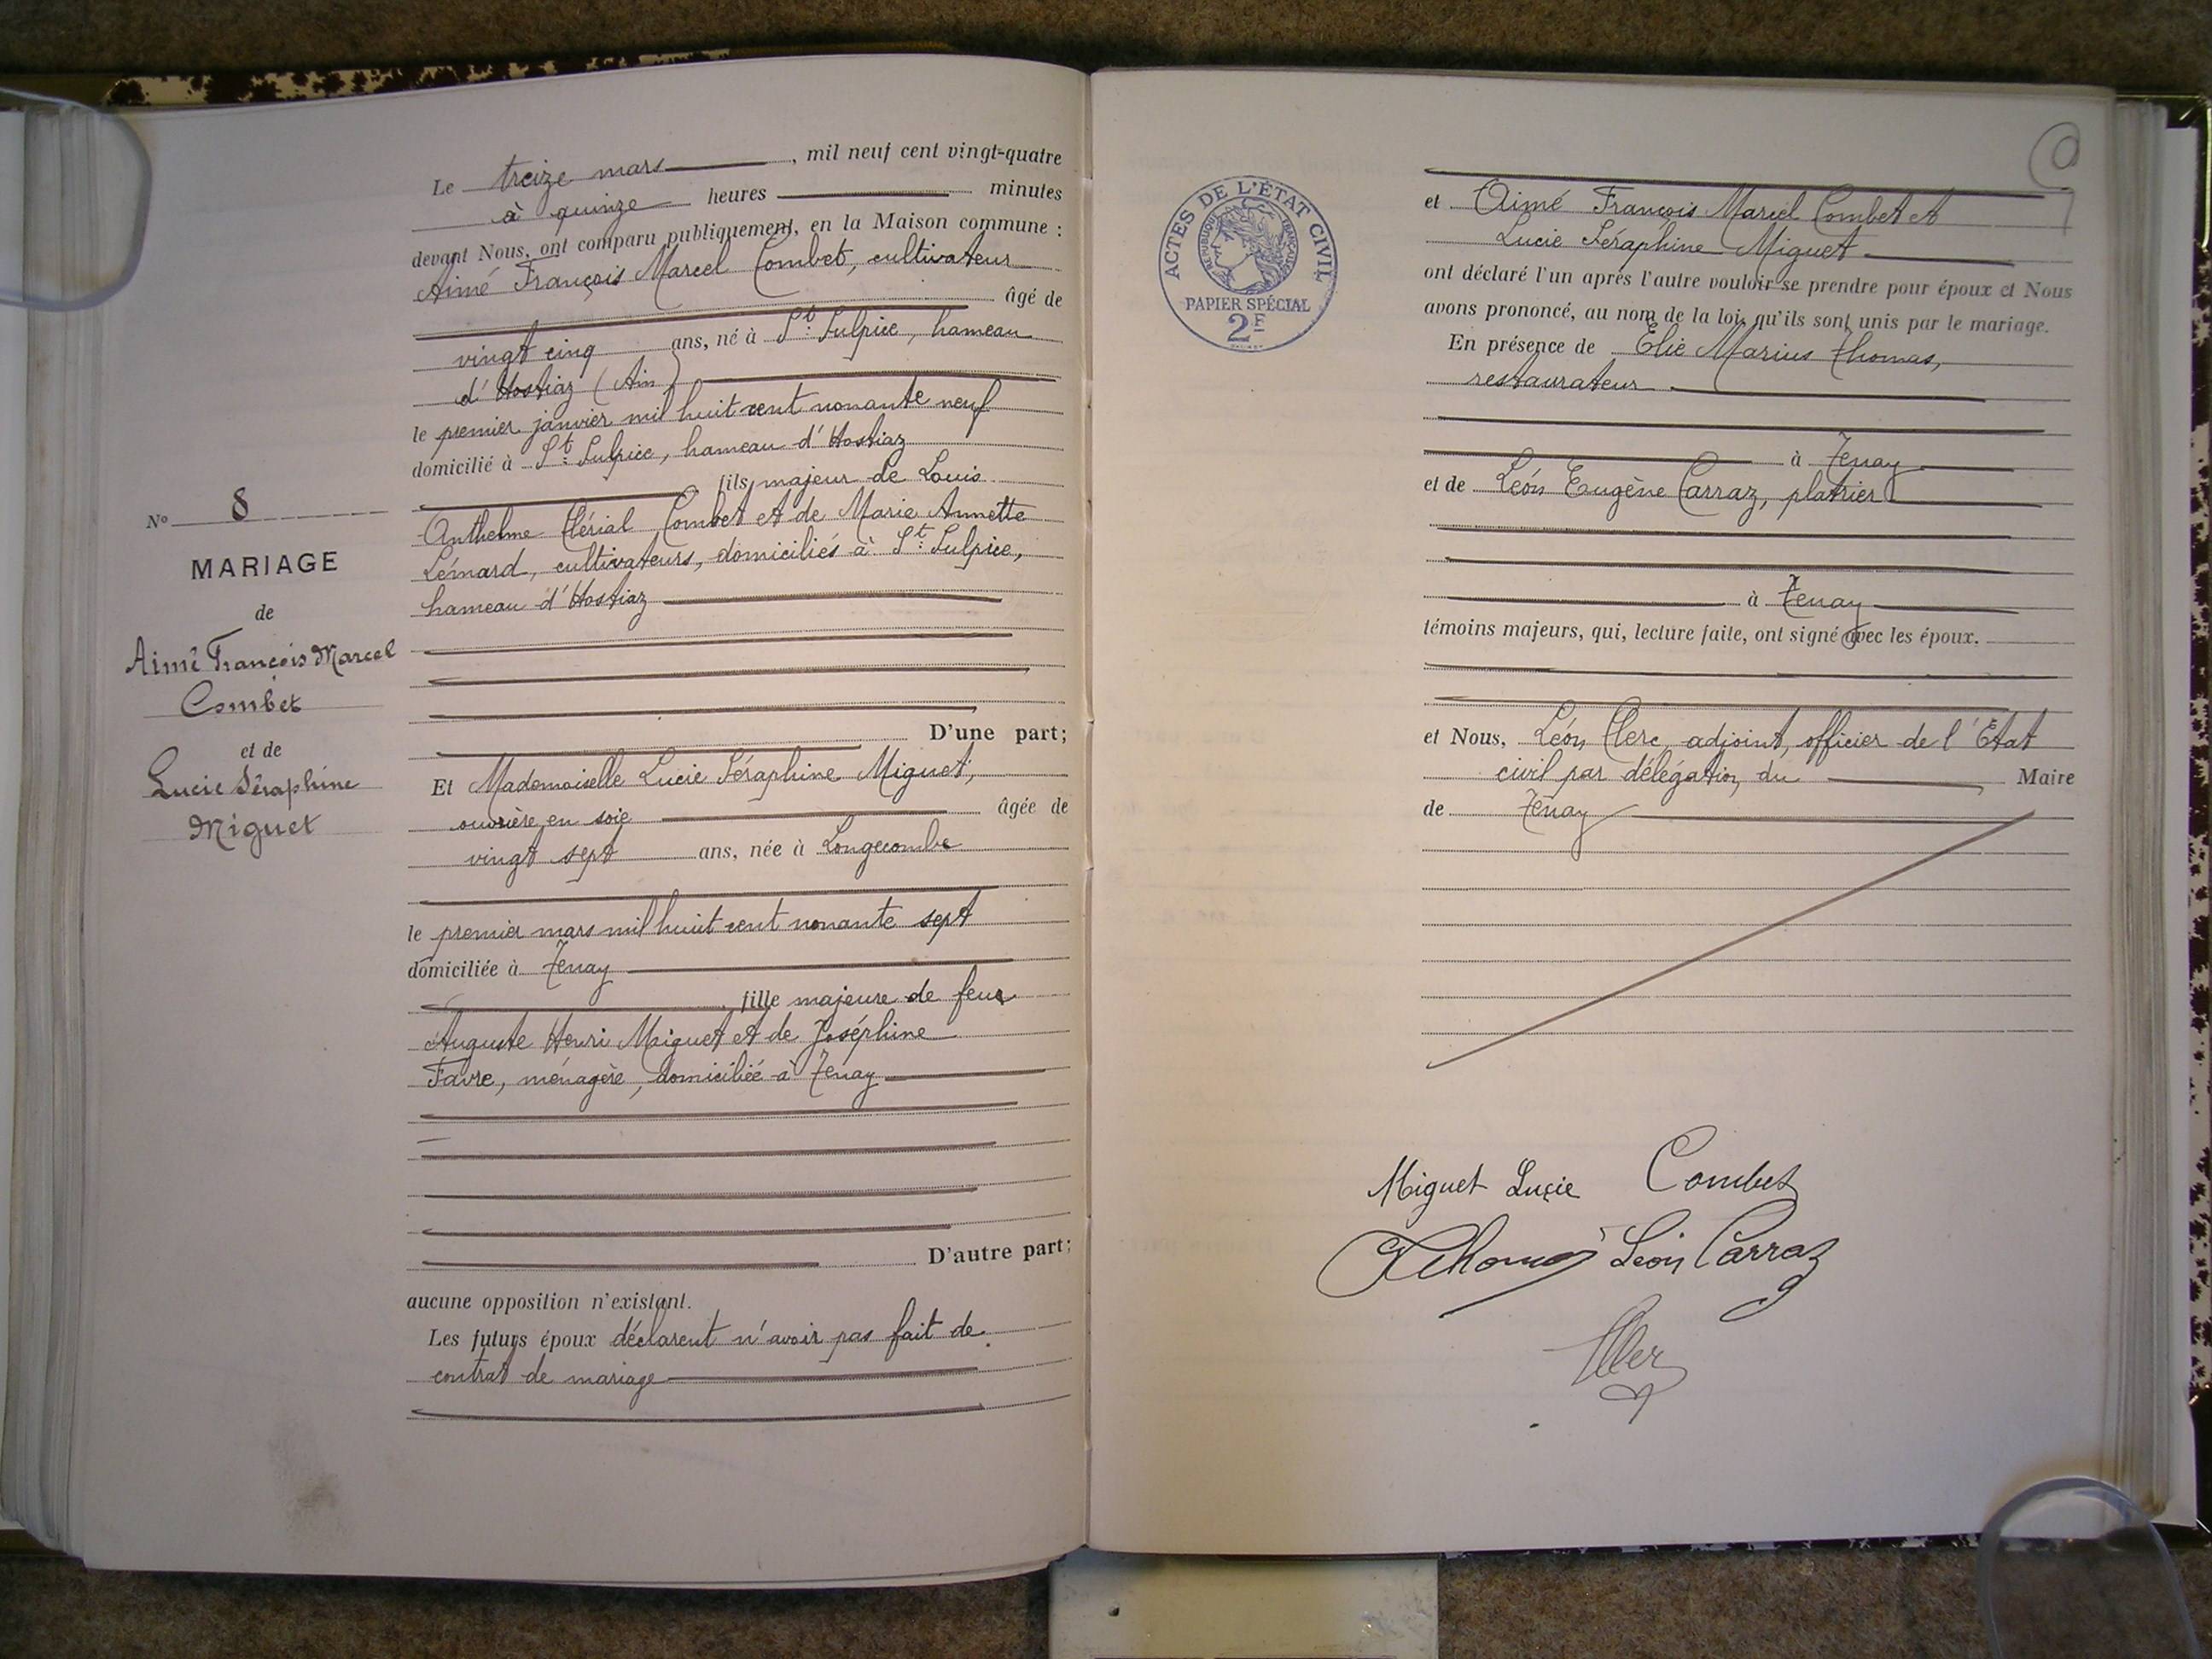 N° 8
MARIAGE
de
Aimé François Marcel
Combet
et de
Lucie Séraphine
Miguet
Le treize mars, mil neuf cent vingt-quatre
à quinze heures minutes
devant Nous, ont comparu publiquement, en la Maison commune :
Aimé François Marcel Combet, cultivateur
âgé de
vingt cinq ans, né à St. Sulpice, hameau
d'Hostiaz (Ain)
le premier janvier mil huit cent nonante neuf
domicilié à St. Sulpice, hameau d'Hostiaz
fils majeur de Louis
Anthelme Clérial Combet et de Marie Annette
Lémard, cultivateurs, domiciliés à St. Sulpice,
hameau d'Hostiaz
D'une part;
Et Mademoiselle Lucie Séraphine Miguet,
ouvrière en soie âgée de
vingt sept ans, née à Longecombe
le premier mars mil huit cent nonante sept
domiciliée à Tenay
, fille majeure de feu
Auguste Henri Miguet et de Joséphine
Favre, ménagère, domiciliée à Tenay
D'autre part;
aucune opposition n'existant.
Les futurs époux déclarent n'avoir pas fait de
contrat de mariage
ACTES DE L'ÉTAT CIVIL
RÉPUBLIQUE FRANÇAISE
PAPIER SPÉCIAL
2F
et Aimé François Marcel Combet et
Lucie Séraphine Miguet
ont déclaré l'un après l'autre vouloir se prendre pour époux et Nous
avons prononcé, au nom de la loi, qu'ils sont unis par le mariage.
En présence de Elie Marius Thomas,
restaurateur
à Tenay
et de Léon Eugène Carraz, platrier
à Tenay
témoins majeurs, qui, lecture faite, ont signé avec les époux.
et Nous, Léon Clerc, adjoint, officier de l'État
civil par délégation du Maire
de Tenay
Miguet Lucie Combet
Thomas Léon Carraz